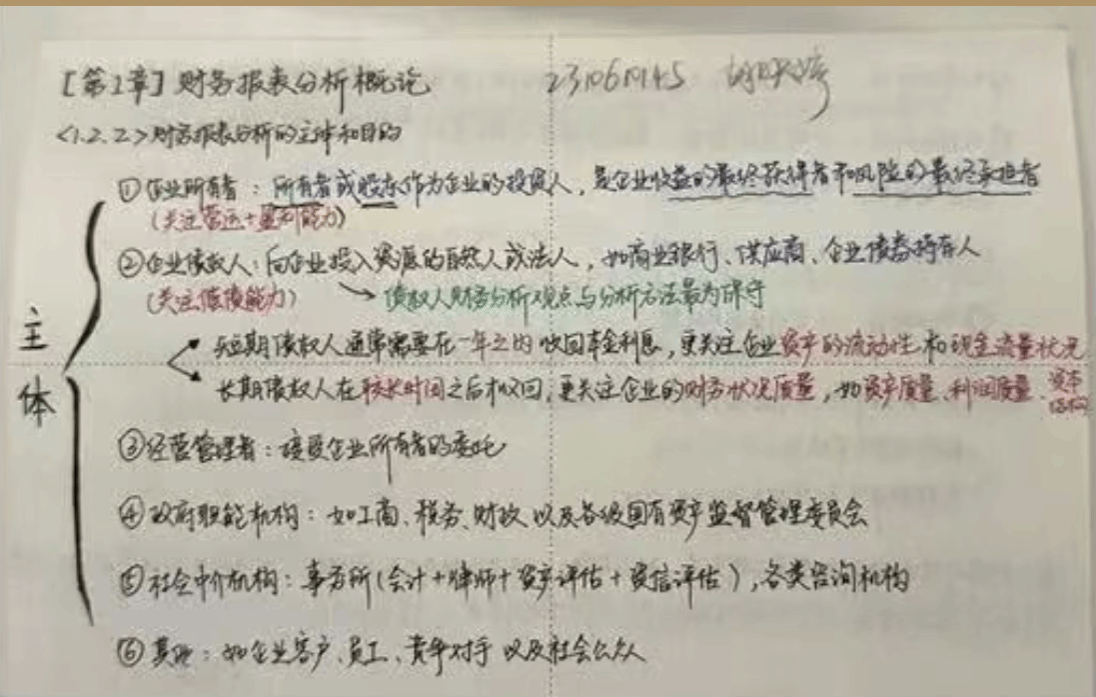 [第1章] 财务报表分析概论 231061945
<1.2.2>财务报表分析的主体和目的
主体
①企业所有者：所有者或股东作为企业的投资人，是企业收益的最终获得者和风险的最终承担者
(关注营运+盈利能力)
②企业债权人：向企业投入资源的自然人或法人，如商业银行、供应商、企业债券持有人
(关注偿债能力) → 债权人财务分析观点与分析方法最为保守
短期债权人通常需要在一年之内收回本金利息，更关注企业资产的流动性和现金流量状况
长期债权人在较长时间之后收回，更关注企业的财务状况质量，如资产质量、利润质量、资本结构
③经营管理者：接受企业所有者的委托
④政府职能机构：如工商、税务、财政以及各级国有资产监督管理委员会
⑤社会中介机构：事务所(会计+律师+资产评估+资信评估)，各类咨询机构
⑥其他：如企业客户、员工、竞争对手以及社会公众